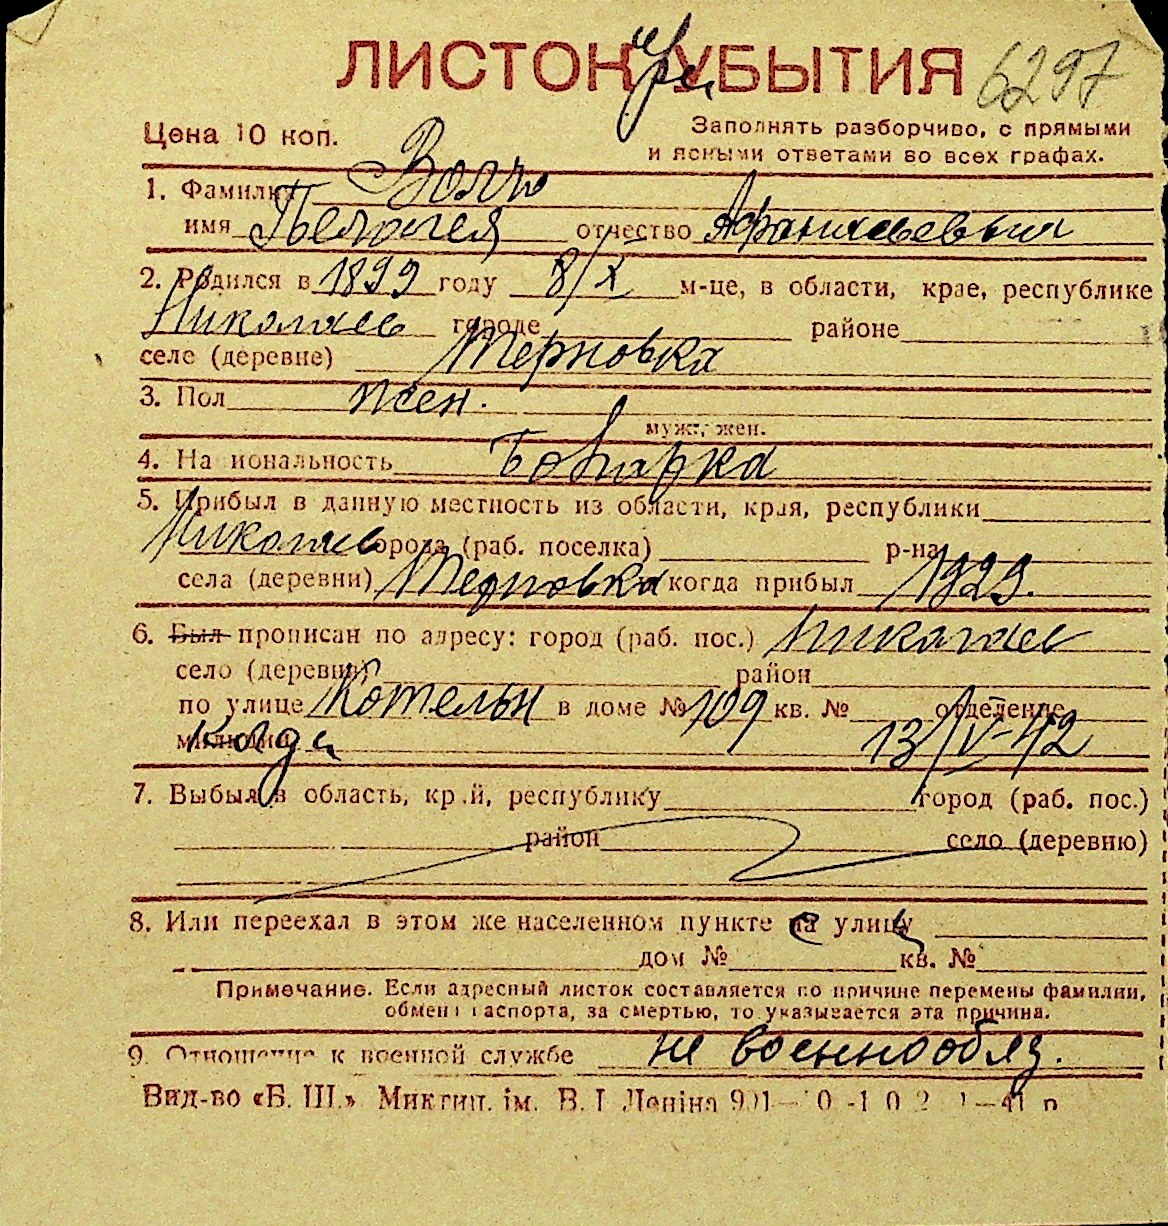 ЛИСТОК при УБЫТИЯ 6297
Цена 10 коп.
Заполнять разборчиво, с прямыми
и ясными ответами во всех графах.
1. Фамилия
имя Пелагея отчество Афанасьевна
2. Родился в 1899 году 8/X м-це, в области, крае, республике
Николаев городе районе
селе (деревне) Терновка
3. Пол жен.
муж., жен.
4. Национальность Болгарка
5. Прибыл в данную местность из области, края, республики
Николаев города (раб. поселка) р-на
села (деревни) Терновка и когда прибыл 1929.
6. Был прописан по адресу: город (раб. пос.) Николаев
село (деревня) район
по улице Котельн в доме № 109 кв. № отделение
милиции когда 13/IV-42
7. Выбыл в область, край, республику город (раб. пос.)
район село (деревню)
8. Или переехал в этом же населенном пункте с улицы
дом № кв. №
Примечание. Если адресный листок составляется по причине перемены фамилии,
обмена паспорта, за смертью, то указывается эта причина.
9. Отношение к военной службе не военнообяз.
Вид-во «Б. Ш.» Микгип. ім. В. І Леніна